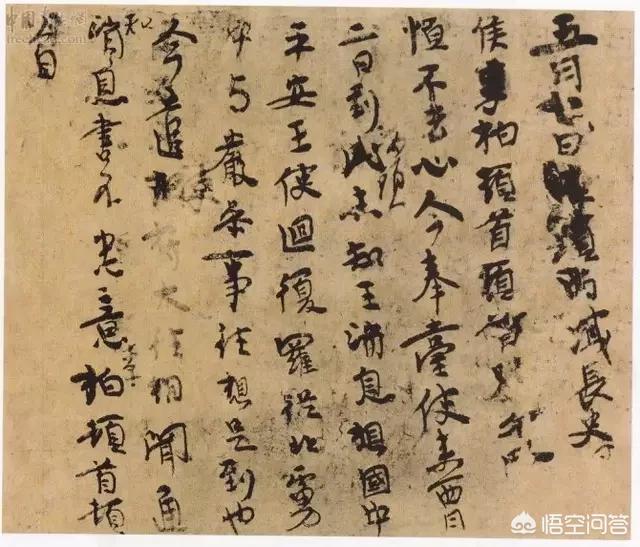 五月七日西域長史
侯李柏頓首頓首
恒不去心今奉臺使來西月
二日到此海頭未知王消息想國中
平安王使迴復羅從北虜
中与嚴參事往想是到也
今遣使苻太往相聞通
知消息書不悉意李柏頓首頓
首
悟空问答